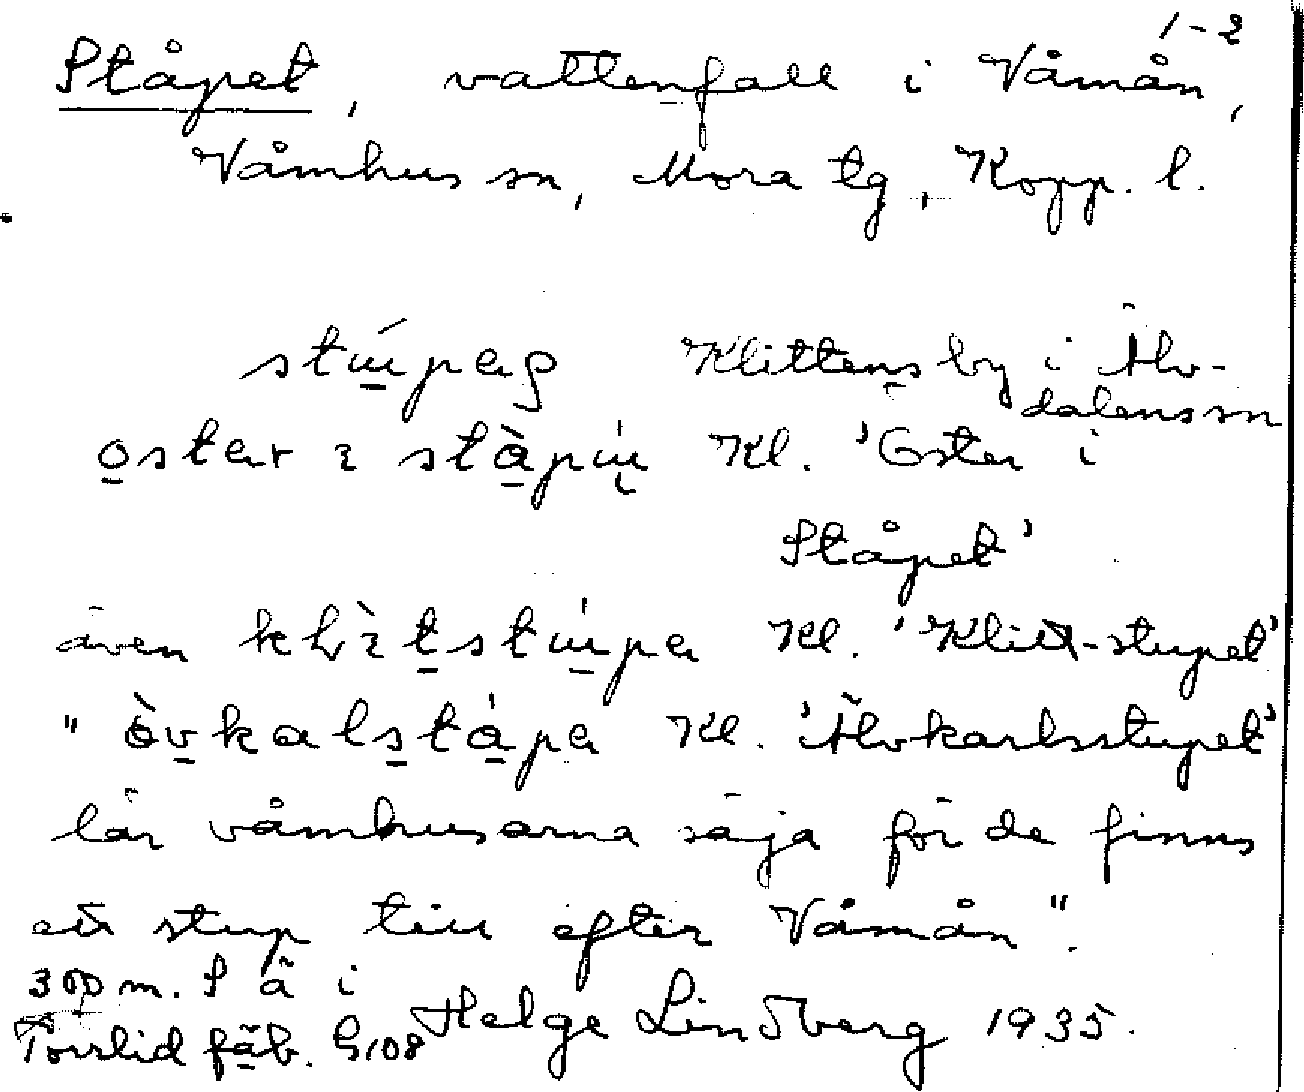 1-2
Ståpet, vattenfall i Våmån,
Våmhus sn, Mora tg, Kopp. l.
Klittens by i Älv-
dalens sn
Kl. 'Öster i
Ståpet'
även Kl. 'Klitt-stupet'
" Kl. 'Älvkarlsstupet'
lär våmhusarna säja för de finns
ett stup till efter Våmån".
300 m. S ä i
Torslid fäb. G108 Helge Lindberg 1935.